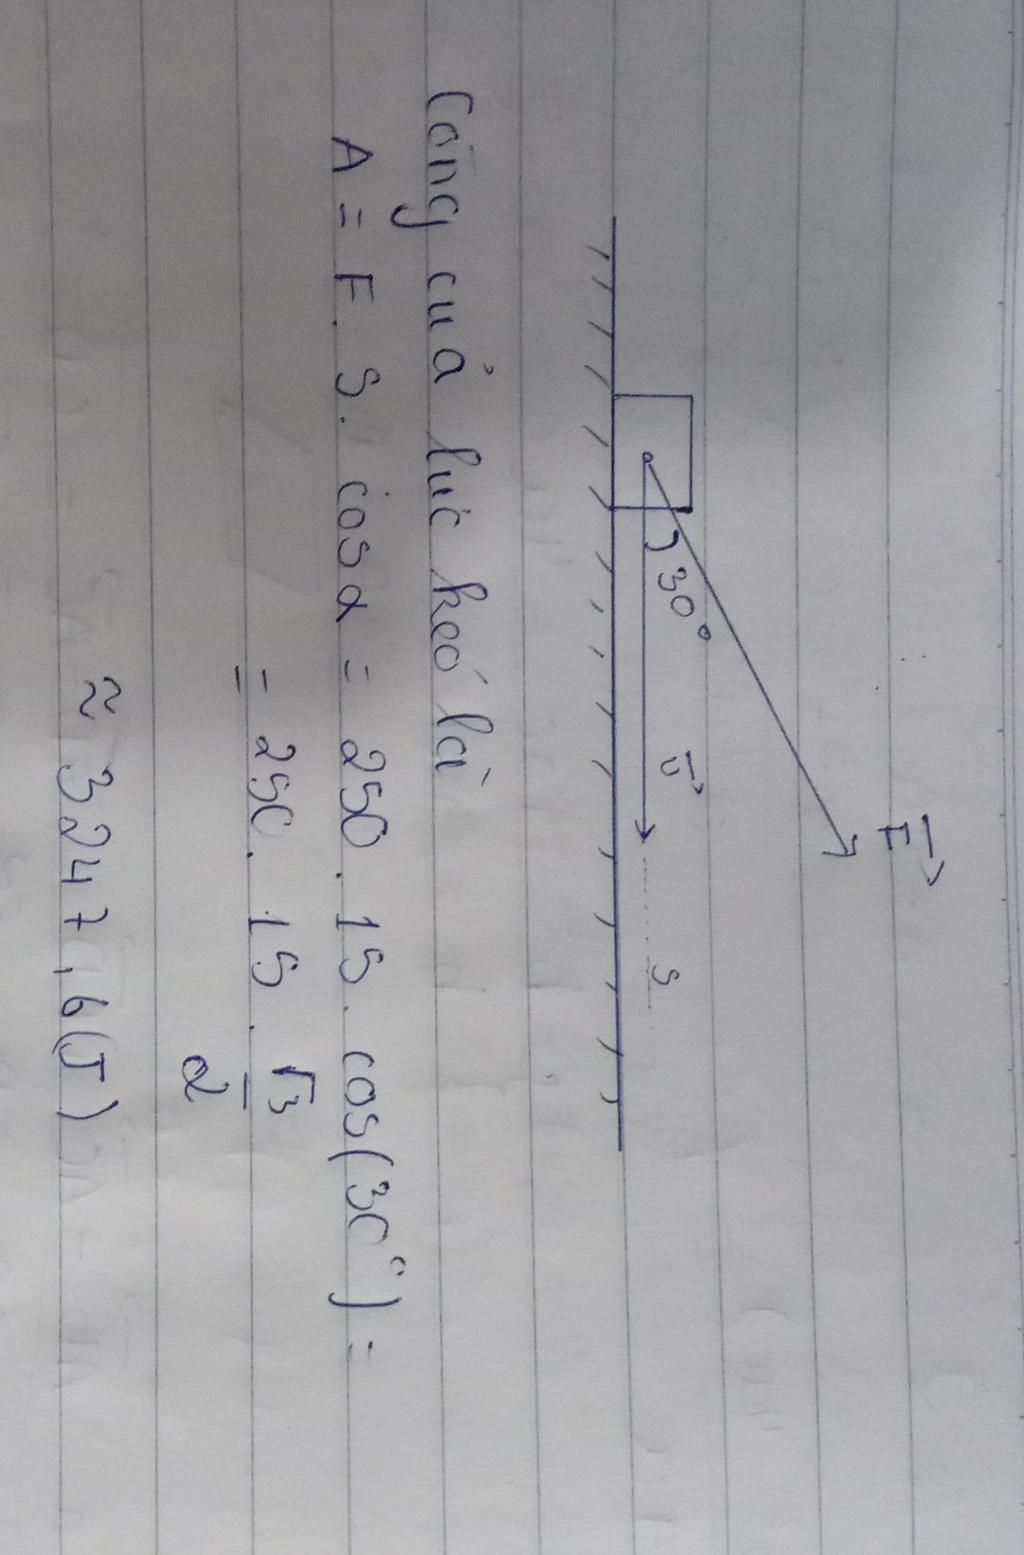 F
30°
v
s
Công cuả lực kéo là
A = F. S. cosα = 250. 15. cos(30°) =
= 250. 15. √3/2
≈ 3247,6(J)